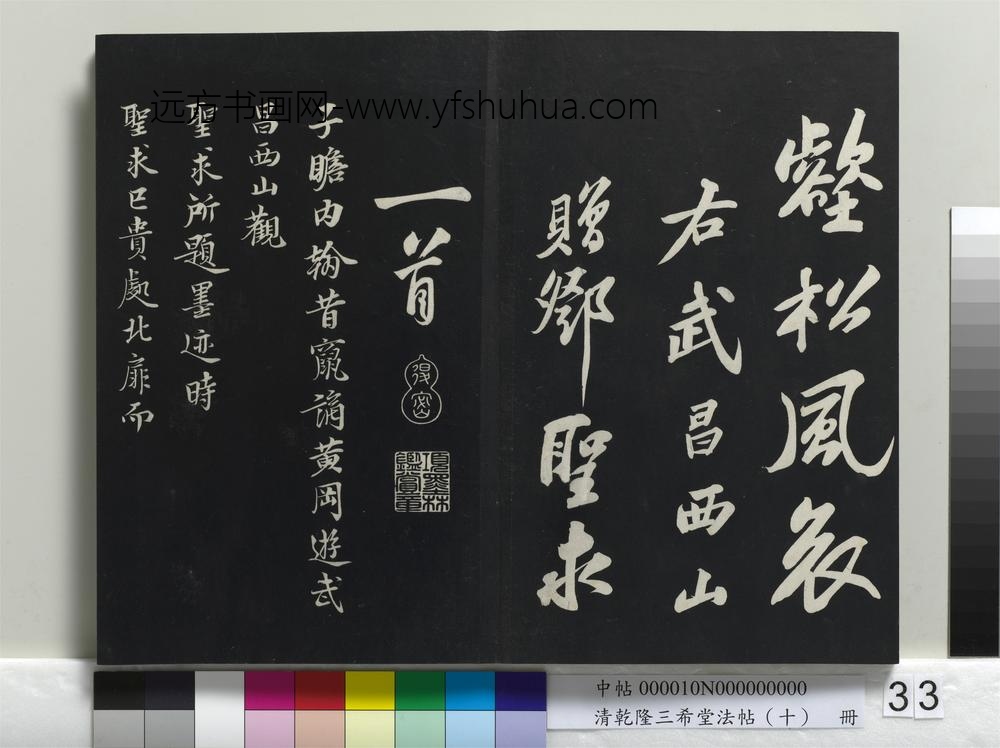 壑松風哀
右武昌西山
贈鄧聖求
一首
得密
項墨林鑑賞章
子瞻內翰昔竄謫黃岡遊武
昌西山觀
聖求所題墨迹時
聖求已貴處北扉而
远方书画网-www.yfshuhua.com
中帖 000010N000000000
清乾隆三希堂法帖（十） 冊
33